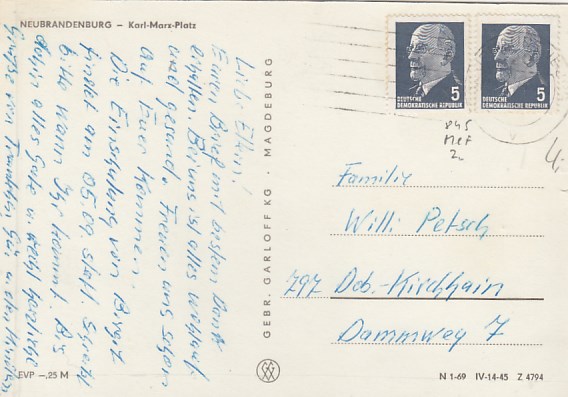 NEUBRANDENBURG – Karl-Marx-Platz
Liebe Eltern!
Euren Brief mit bestem Dank
erhalten. Bei uns ist alles wohlauf
und gesund. Freuen uns schon
auf Euer Kommen.
Die Einschulung von Birgit
findet am 05.09. statt. Schreibt
bitte wann Ihr kommt. Bis
dahin alles Gute u. recht herzliche
Grüße von
GEBR. GARLOFF KG · MAGDEBURG
5
DEUTSCHE
DEMOKRATISCHE REPUBLIK
5
DEUTSCHE
DEMOKRATISCHE REPUBLIK
845
MeF
2,
Familie
Willi Petsch
797 Dob.-Kirchhain
Dammweg 7
EVP –,25 M
N 1-69 IV-14-45 Z 4794